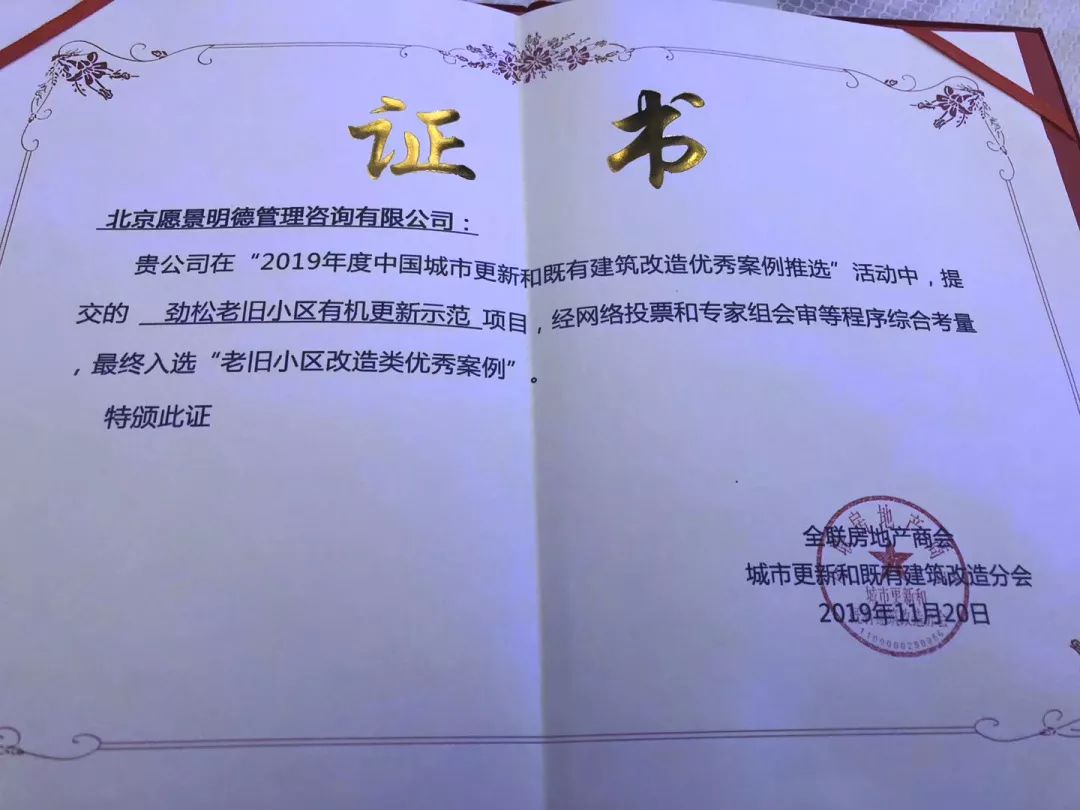 证 书
北京愿景明德管理咨询有限公司：
贵公司在“2019年度中国城市更新和既有建筑改造优秀案例推选”活动中，提
交的 劲松老旧小区有机更新示范 项目，经网络投票和专家组会审等程序综合考量
，最终入选“老旧小区改造类优秀案例”。
特颁此证
全联房地产商会
城市更新和既有建筑改造分会
2019年11月20日
房地产
城市更新和